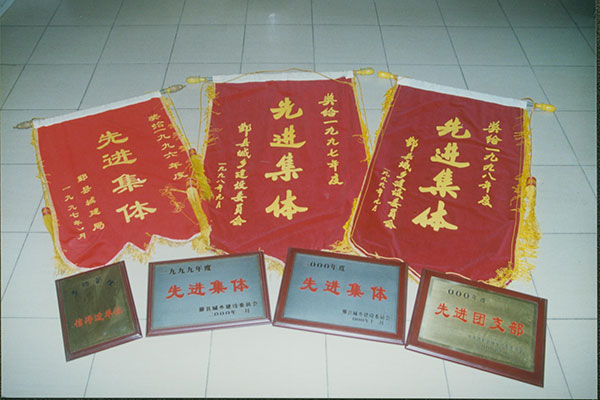 奖给一九九六年度
先进集体
郫县城建局
一九九七年一月
奖给一九九七年度
先进集体
郫县城乡建设委员会
一九九八年元月
奖给一九九八年度
先进集体
郫县城乡建设委员会
一九九九年元月
一九九九年度
先进集体
郫县城乡建设委员会
二000年一月
二000年度
先进集体
郫县城乡建设委员会
二000年度
先进团支部